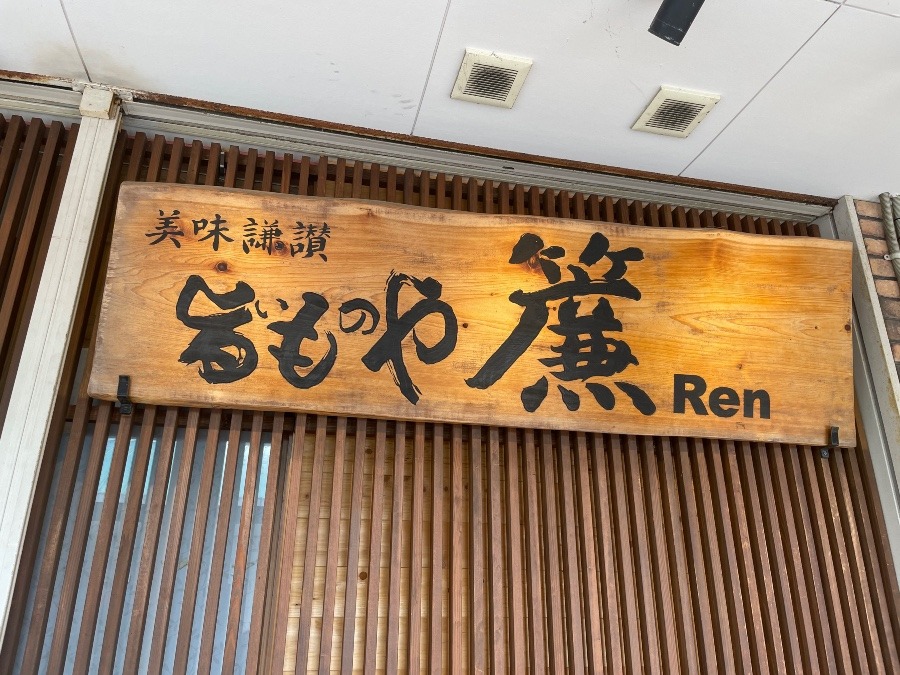 美味謙讃
旨いものや 簾 Ren